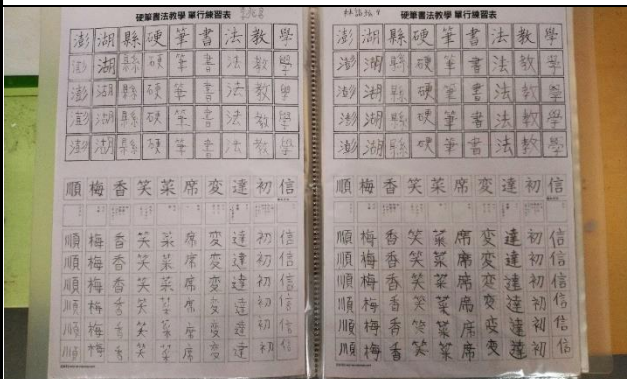 硬筆書法教學 單行練習表
澎湖縣硬筆書法教學
澎湖縣硬筆書法教學
澎湖縣硬筆書法教學
澎湖縣硬筆書法教學
澎湖縣硬筆書法教學
順梅香笑菜席変達初信
順梅香笑菜席変達初信
順梅香笑菜席変達初信
順梅香笑菜席変達初信
順梅香笑菜席変達初信
順梅香笑菜席変達初信
順梅香笑菜席変達初信
硬筆書法教學 單行練習表
澎湖縣硬筆書法教學
澎湖縣硬筆書法教學
澎湖縣硬筆書法教學
澎湖縣硬筆書法教學
澎湖縣硬筆書法教學
順梅香笑菜席変達初信
順梅香笑菜席変達初信
順梅香笑菜席変達初信
順梅香笑菜席変達初信
順梅香笑菜席変達初信
順梅香笑菜席変達初信
順梅香笑菜席変達初信